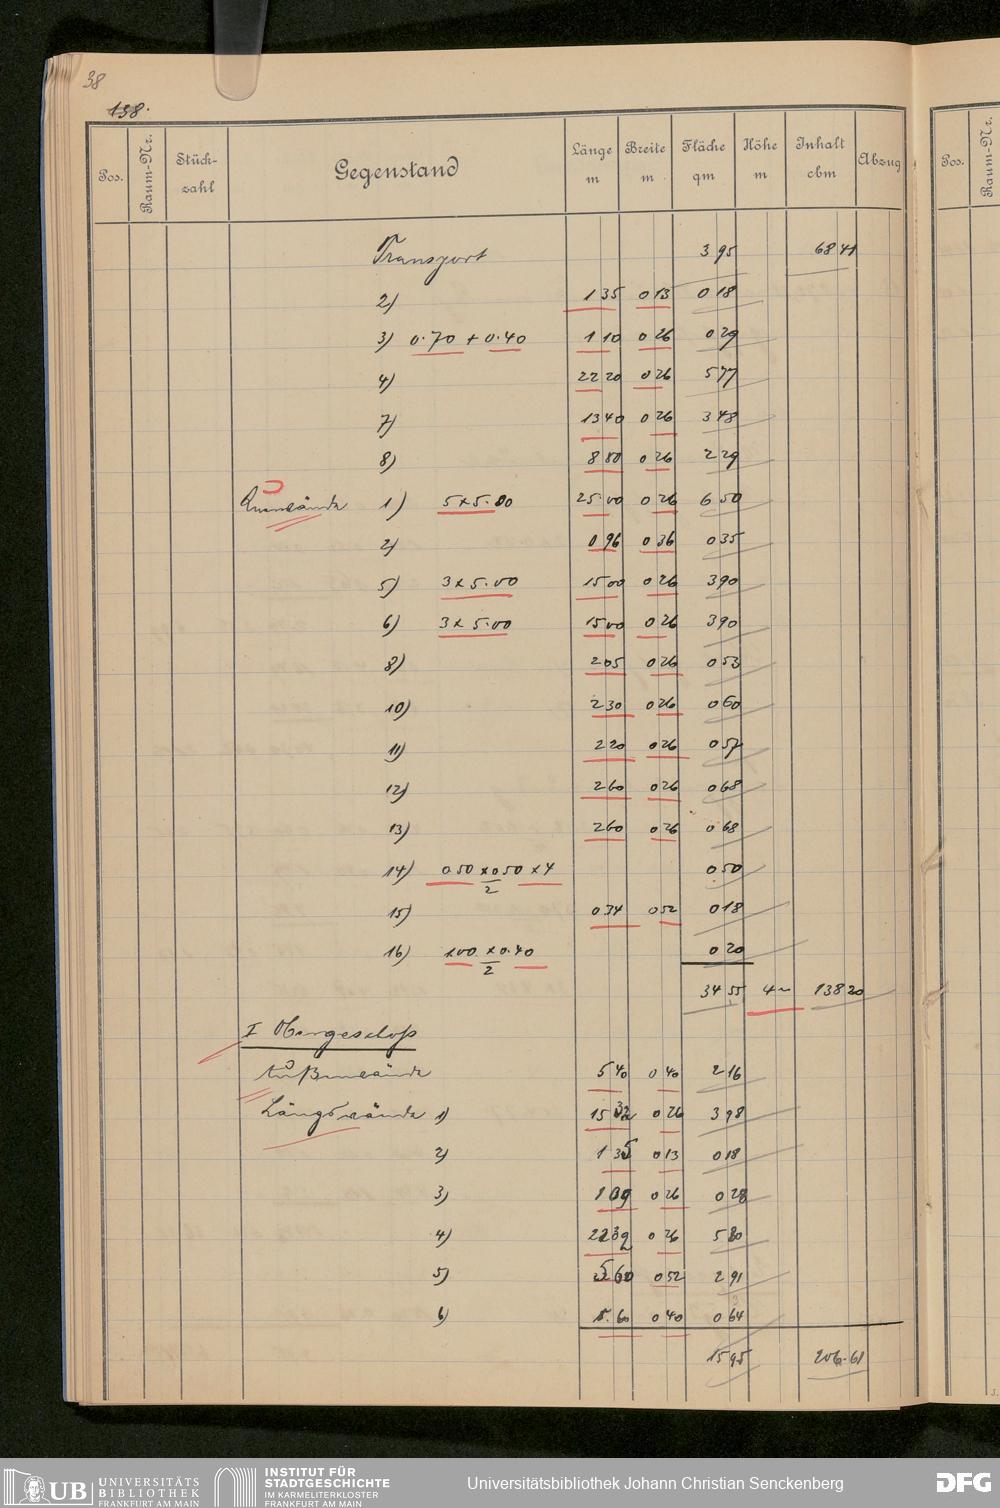 38
138.
Pos. Raum-Nr. Stück-zahl Gegenstand Länge m Breite m Fläche qm Höhe m Inhalt cbm Abzug Pos. Raum-Nr.
Transport 3 95 68 41
2) 1 35 0 13 0 18
3) 0.70 + 0.40 1 10 0 26 0 29
4) 22 20 0 26 5 77
7) 13 40 0 26 3 48
8) 8 80 0 26 2 29
Querwände 1) 5 x 5.00 25.00 0 26 6 50
2) 0 96 0 36 0 35
5) 3 x 5.00 15 00 0 26 3 90
6) 3 x 5.00 15 00 0 26 3 90
8) 2 05 0 26 0 53
10) 2 30 0 26 0 60
11) 2 20 0 26 0 57
12) 2 60 0 26 0 68
13) 2 60 0 26 0 68
14) 0 50 x 0 50 x 4 0 50
2
15) 0 34 0 52 0 18
16) 1.00 x 0.40 0 20
2
34 55 4 ~ 138 20
I Obergeschoß
Außenwände 5 40 0 40 2 16
Längswände 1) 15 32 0 26 3 98
2) 1 35 0 13 0 18
3) 1 09 0 26 0 28
4) 22 32 0 26 5 80
5) 5 60 0 52 2 91
6) 1.60 0 40 0 64
15 95 206.61
UB UNIVERSITÄTS BIBLIOTHEK FRANKFURT AM MAIN
INSTITUT FÜR STADTGESCHICHTE IM KARMELITERKLOSTER FRANKFURT AM MAIN
Universitätsbibliothek Johann Christian Senckenberg
DFG